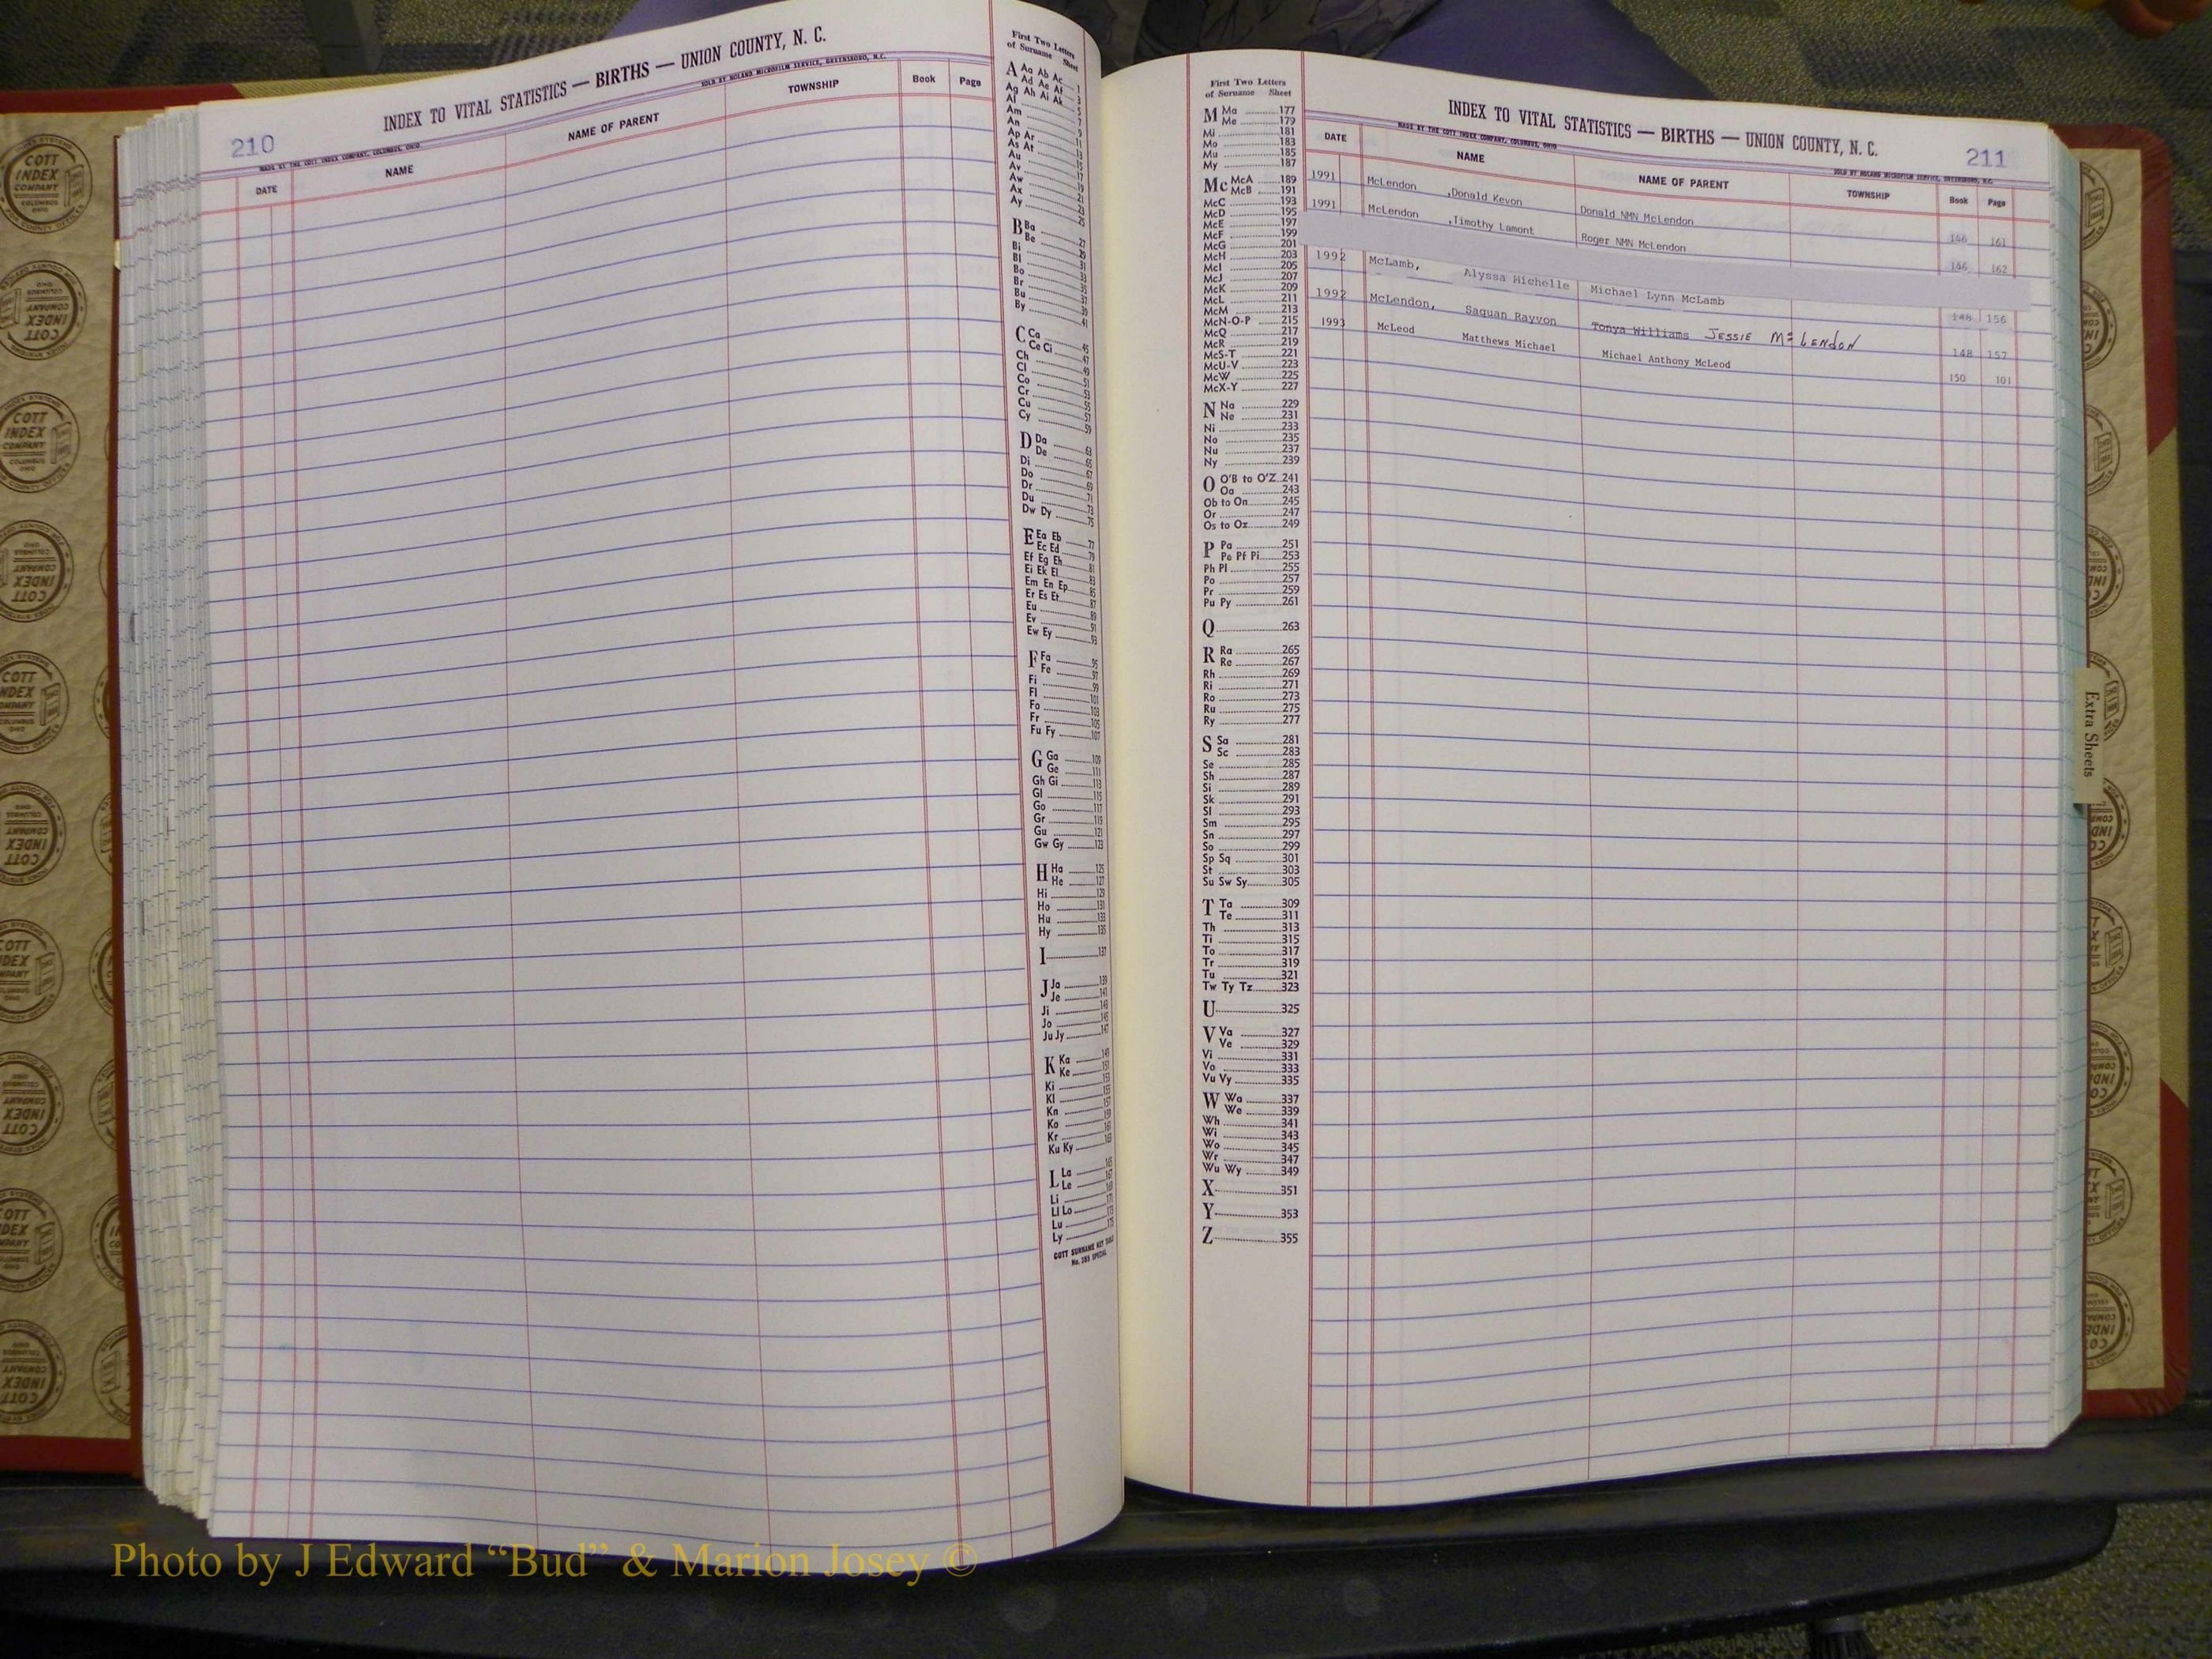 210
INDEX TO VITAL STATISTICS — BIRTHS — UNION COUNTY, N. C.
MADE BY THE COTT INDEX COMPANY, COLUMBUS, OHIO
SOLD BY NOLAND MICROFILM SERVICE, GREENSBORO, N.C.
DATE NAME NAME OF PARENT TOWNSHIP Book Page
First Two Letters
of Surname Sheet
A Aa Ab Ac 1
Ad Ae Af 3
Ag Ah Ai Ak 5
Al 7
Am 9
An 11
Ap Ar 13
As At 15
Au 17
Av 19
Aw 21
Ax 23
Ay 25
B Ba 27
Be 29
Bi 31
Bl 33
Bo 35
Br 37
Bu 39
By 41
C Ca 45
Ce Ci 47
Ch 49
Cl 51
Co 53
Cr 55
Cu 57
Cy 59
D Da 63
De 65
Di 67
Do 69
Dr 71
Du 73
Dw Dy 75
E Ea Eb 77
Ec Ed 79
Ef Eg Eh 81
Ei Ek El 83
Em En Ep 85
Er Es Et 87
Eu 89
Ev 91
Ew Ey 93
F Fa 95
Fe 97
Fi 99
Fl 101
Fo 103
Fr 105
Fu Fy 107
G Ga 109
Ge 111
Gh Gi 113
Gl 115
Go 117
Gr 119
Gu 121
Gw Gy 123
H Ha 125
He 127
Hi 129
Ho 131
Hu 133
Hy 135
I 137
J Ja 139
Je 141
Ji 143
Jo 145
Ju Jy 147
K Ka 149
Ke 151
Ki 153
Kl 155
Kn 157
Ko 159
Kr 161
Ku Ky 163
L La 165
Le 167
Li 169
Ll Lo 171
Lu 173
Ly 175
COTT SURNAME KEY TABLE
No. 385 SPECIAL
First Two Letters
of Surname Sheet
M Ma 177
Me 179
Mi 181
Mo 183
Mu 185
My 187
Mc McA 189
McB 191
McC 193
McD 195
McE 197
McF 199
McG 201
McH 203
McI 205
McJ 207
McK 209
McL 211
McM 213
McN-O-P 215
McQ 217
McR 219
McS-T 221
McU-V 223
McW 225
McX-Y 227
N Na 229
Ne 231
Ni 233
No 235
Nu 237
Ny 239
O O'B to O'Z 241
Oa 243
Ob to On 245
Or 247
Os to Oz 249
P Pa 251
Pe Pf Pi 253
Ph Pl 255
Po 257
Pr 259
Pu Py 261
Q 263
R Ra 265
Re 267
Rh 269
Ri 271
Ro 273
Ru 275
Ry 277
S Sa 281
Sc 283
Se 285
Sh 287
Si 289
Sk 291
Sl 293
Sm 295
Sn 297
So 299
Sp Sq 301
St 303
Su Sw Sy 305
T Ta 309
Te 311
Th 313
Ti 315
To 317
Tr 319
Tu 321
Tw Ty Tz 323
U 325
V Va 327
Ve 329
Vi 331
Vo 333
Vu Vy 335
W Wa 337
We 339
Wh 341
Wi 343
Wo 345
Wr 347
Wu Wy 349
X 351
Y 353
Z 355
INDEX TO VITAL STATISTICS — BIRTHS — UNION COUNTY, N. C.
211
MADE BY THE COTT INDEX COMPANY, COLUMBUS, OHIO
SOLD BY NOLAND MICROFILM SERVICE, GREENSBORO, N.C.
DATE NAME NAME OF PARENT TOWNSHIP Book Page
1991 McLendon ,Donald Kevon Donald NMN McLendon 146 161
1991 McLendon ,Timothy Lamont Roger NMN McLendon 146 162
1992 McLamb, Alyssa Michelle Michael Lynn McLamb 148 156
1992 McLendon, Saquan Rayvon Tonya Williams JESSIE McLENDON 148 157
1993 McLeod Matthews Michael Michael Anthony McLeod 150 101
Extra Sheets
COTT
INDEX
COMPANY
COLUMBUS
OHIO
Photo by J Edward “Bud” & Marion Josey ©